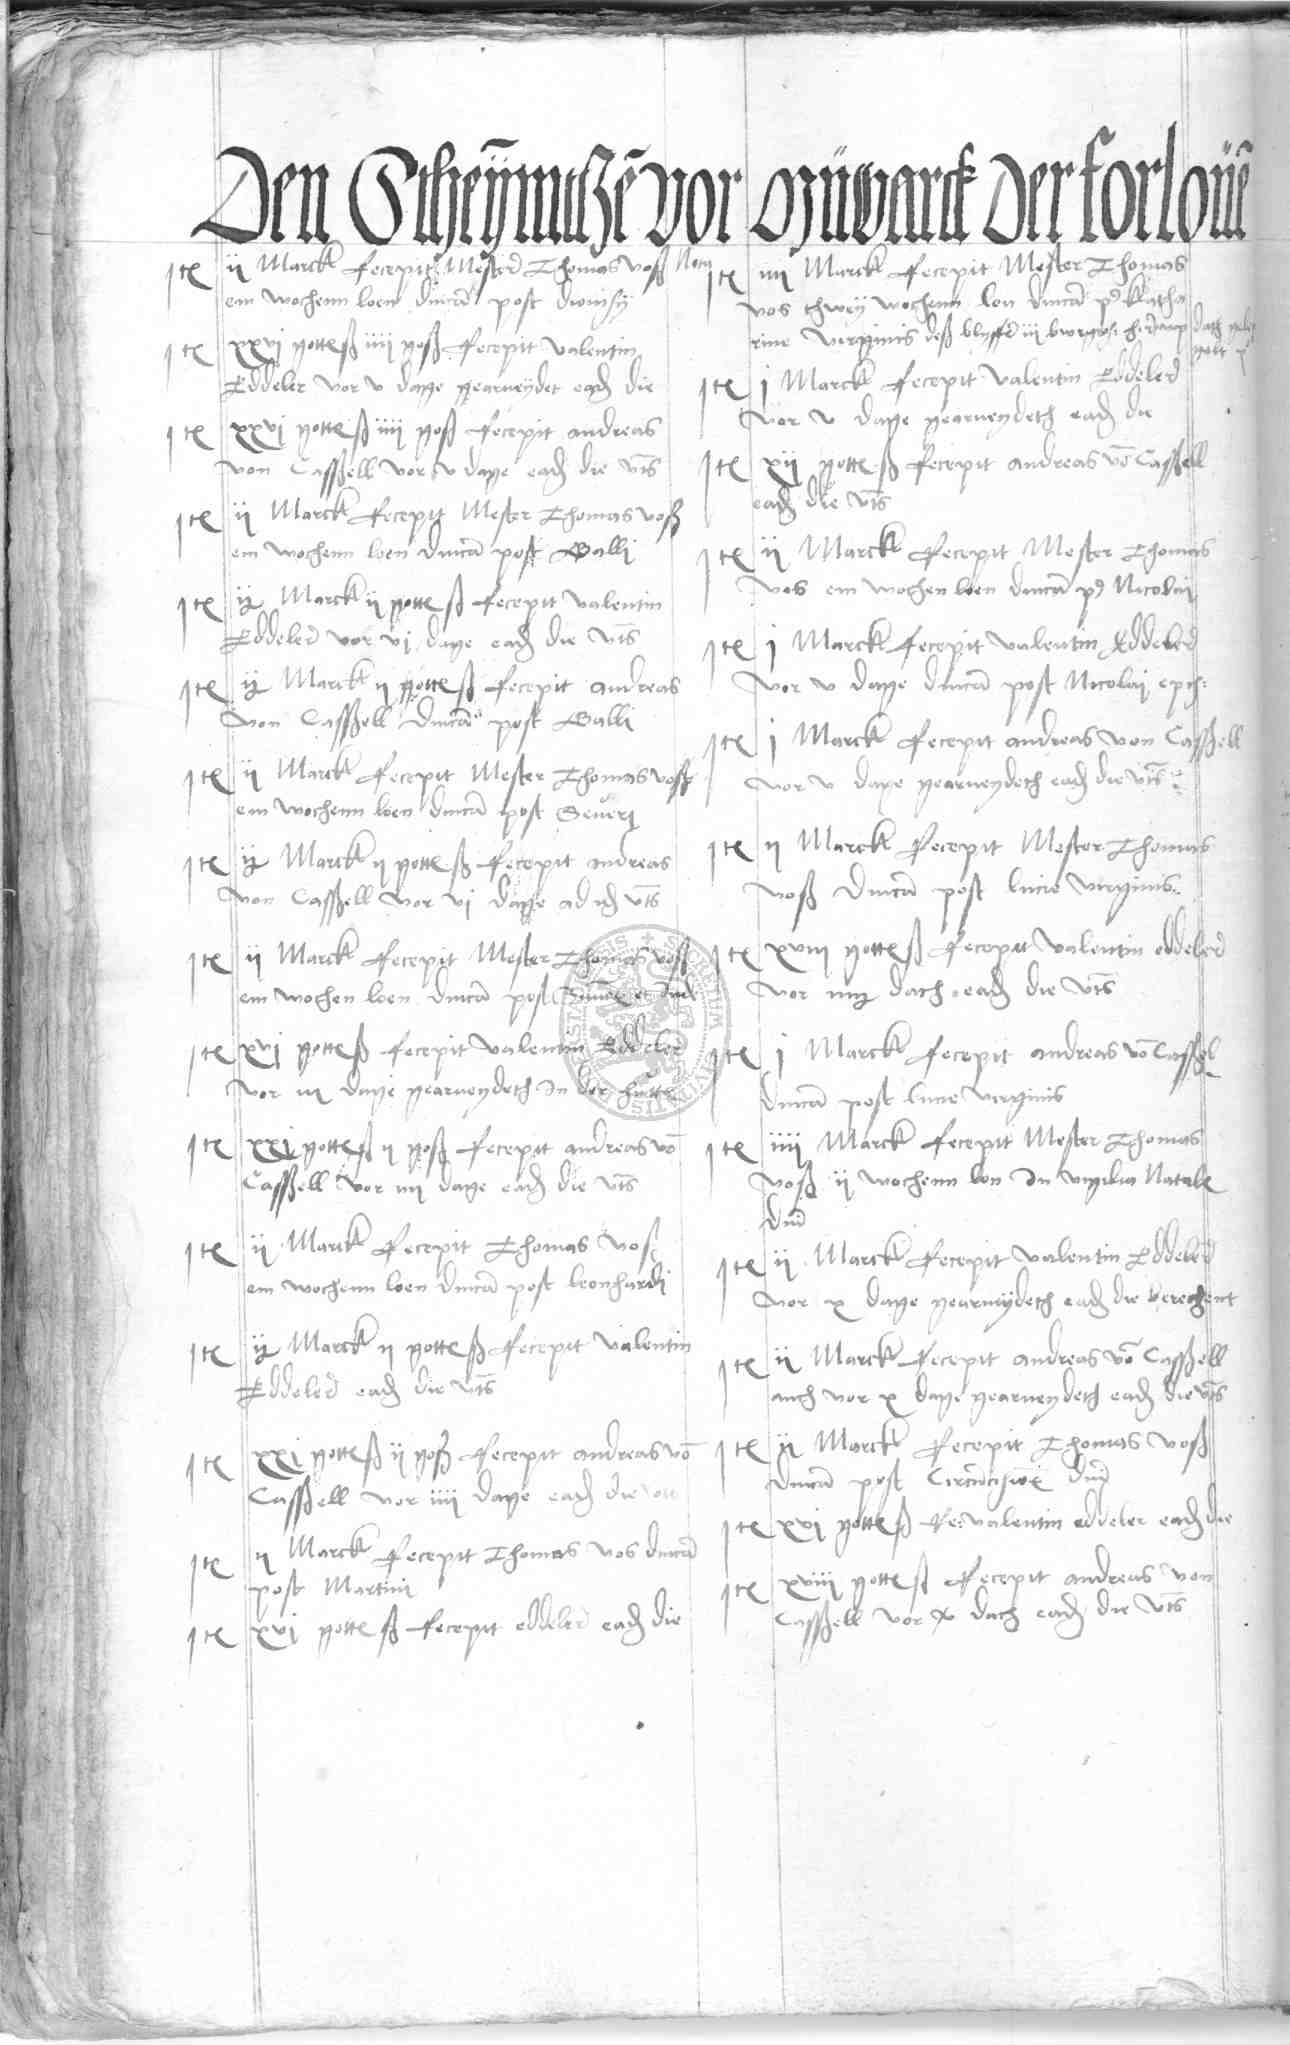 Den Stheÿmitzē vor Nüwarck der forloüē
Itē ij Marck Recepit Mester Thomas voß
em wochenn loen dmcā post dionisij
Itē xxvj gotteß iiij goß Recepit valentin
Eddeler vor v dage gearveydet eadē die
Itē xxvj gotteß iiij goß Recepit andreas
von Casßell vor v dage eadē die vts
Itē ij Marck Recepit Mester Thomas voß
em wochenn loen dmcā post Galli
Itē Marck ij gotteß Recepit valentin
Eddeler vor vj dage eadē die vts
Itē Marck ij gotteß Recepit andreas
von Casßell dmcā post Galli
Itē ij Marck Recepit Mester Thomas voß
em wochenn loen dmcā post Severi
Itē Marck ij gotteß Recepit andreas
von Casßell vor vj dage ad vts
Itē ij Marck Recepit Mester Thomas voß
em wochen loen dmcā post
Itē xvj gotteß Recepit valentin Eddeler
vor iij dage gearveydeth In der hutte
Itē xxj gotteß ij goß Recepit andreas vō
Casßell vor iiij dage eadē die vts
Itē ij Marck Recepit Thomas voß
em wochenn loen dmcā post leonhardi
Itē Marck ij gotteß Recepit valentin
Eddeler eadē die vts
Itē xxj gotteß ij goß Recepit andreas vō
Casßell vor iiij dage eadē die vts
Itē ij Marck Recepit Thomas vos dmcā
post Martini
Itē xvj gotteß Recepit eddeler eadē die
Nota
Itē iiij Marck Recepit Mester Thomas
vos thweÿ wochenn lon dmcā p9 katha
rine virginis deß blyffer iij
Itē j Marck Recepit valentin Eddeler
vor v dage gearveydeth eadē die
Itē xij gotteß Recepit andreas vō Casßell
eadē die vts
Itē ij Marck Recepit Mester Thomas
vos em wochen loen dmcā p9 Nicolai
Itē j Marck Recepit valentin Eddeler
vor v dage dmcā post Nicolai epis:
Itē j Marck Recepit andreas von Casßell
vor v dage gearveydeth eadē die vts
Itē ij Marck Recepit Mester Thomas
voß dmcā post lucie virginis
Itē xviij gotteß Recepit valentin eddeler
vor dach eadē die vts
Itē j Marck Recepit andreas vō Casßel
dmcā post lucie virginis
Itē iiij Marck Recepit Mester Thomas
voß ij wochenn lon In vigilia Natale
dnī
Itē ij Marck Recepit valentin Eddeler
vor x dage gearveÿdeth eadē die berechent
Itē ij Marck Recepit andreas vō Casßell
auch vor x dage gearveydeth eadē die vts
Itē ij Marck Recepit Thomas voß
dmcā post Circūcisiōē dnī
Itē xvj gotteß Re: valentin eddeler eadē die
Itē xviij gotteß Recepit andreas von
Casßell vor dach eadē die vts